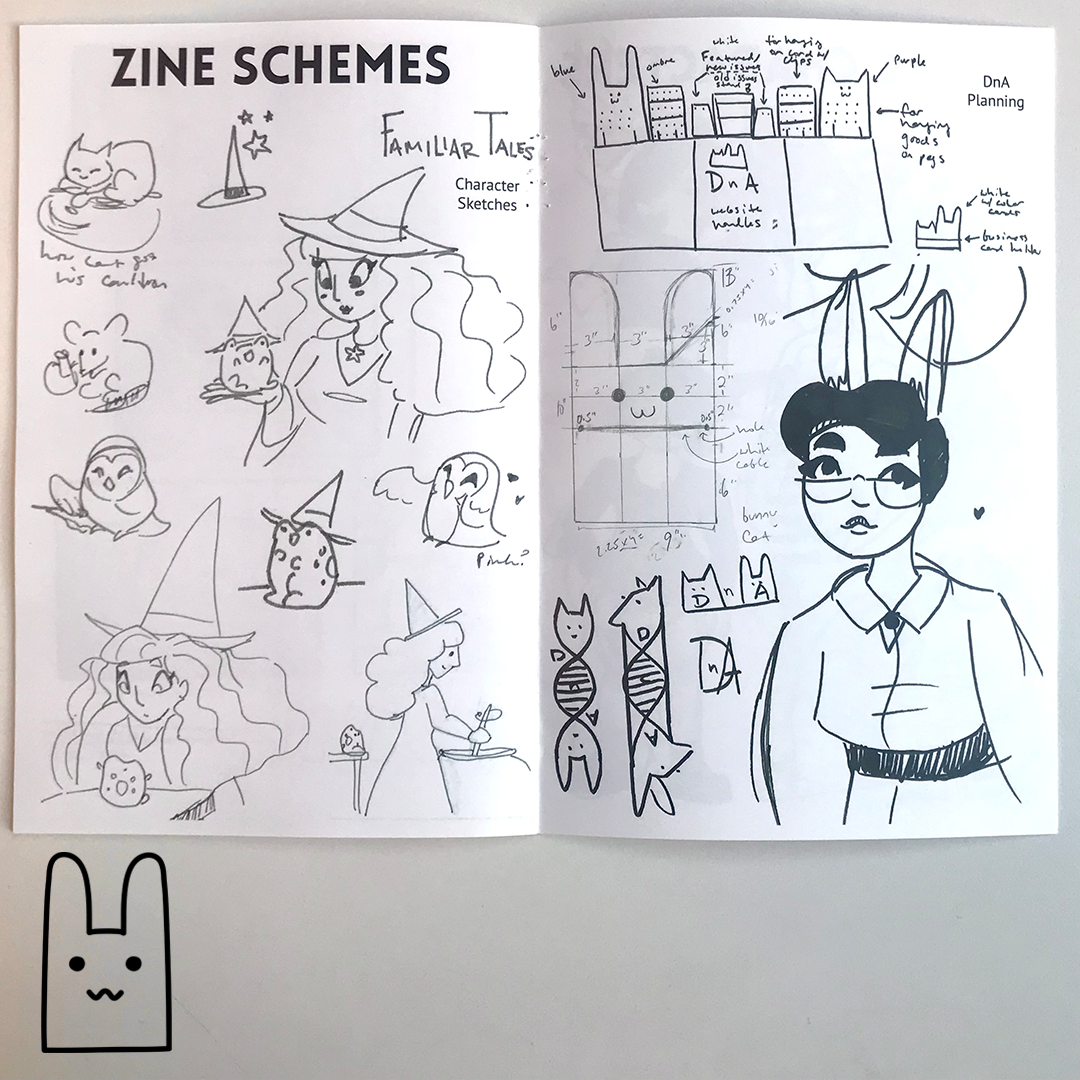 ZINE SCHEMES
FAMILIAR TALES
Character
Sketches
how cat got
his cauldron
DnA
Planning
blue
ombre
white
Featured/
new issues
old issues
stand
for hanging
on cord w/
clips
purple
for
hanging
goods
on pegs
DnA
website
handles
white
w/ color
cards
business
card holder
13"
6"
3"
3"
3"
6"
3"
3"
3"
2"
2"
10"
0.5"
0.5"
hole
white
cable
6"
bunny
cat
9"
D n A
D
n
A
D
DnA